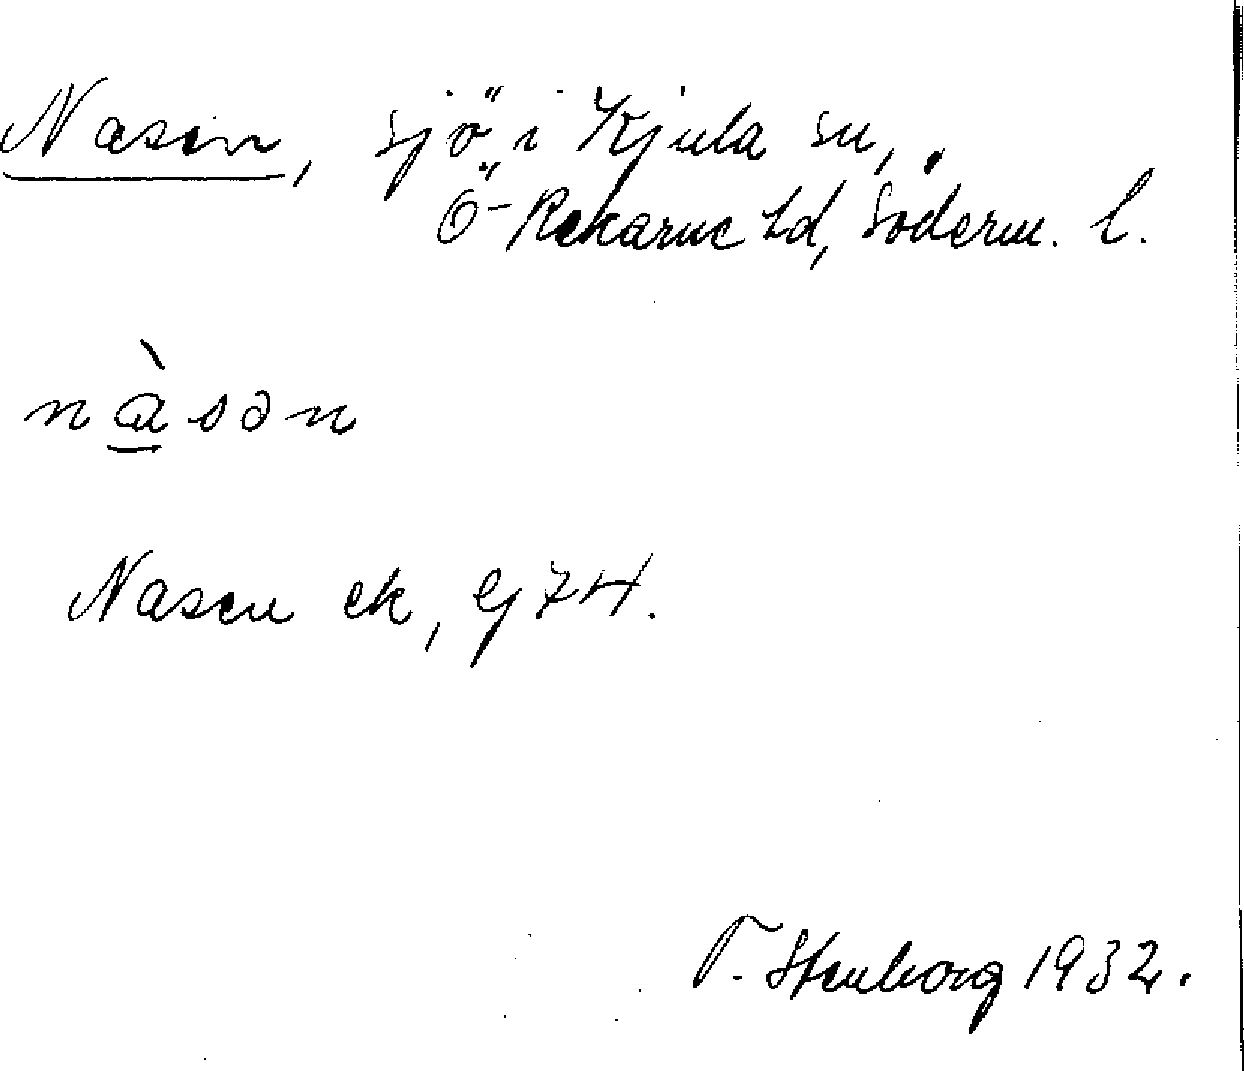 Nasen, sjö i Kjula sn,
Ö-Rekarne hd, Söderm. l.
nàsən
Nasen ek, Gj 74.
T. Stenborg 1932.